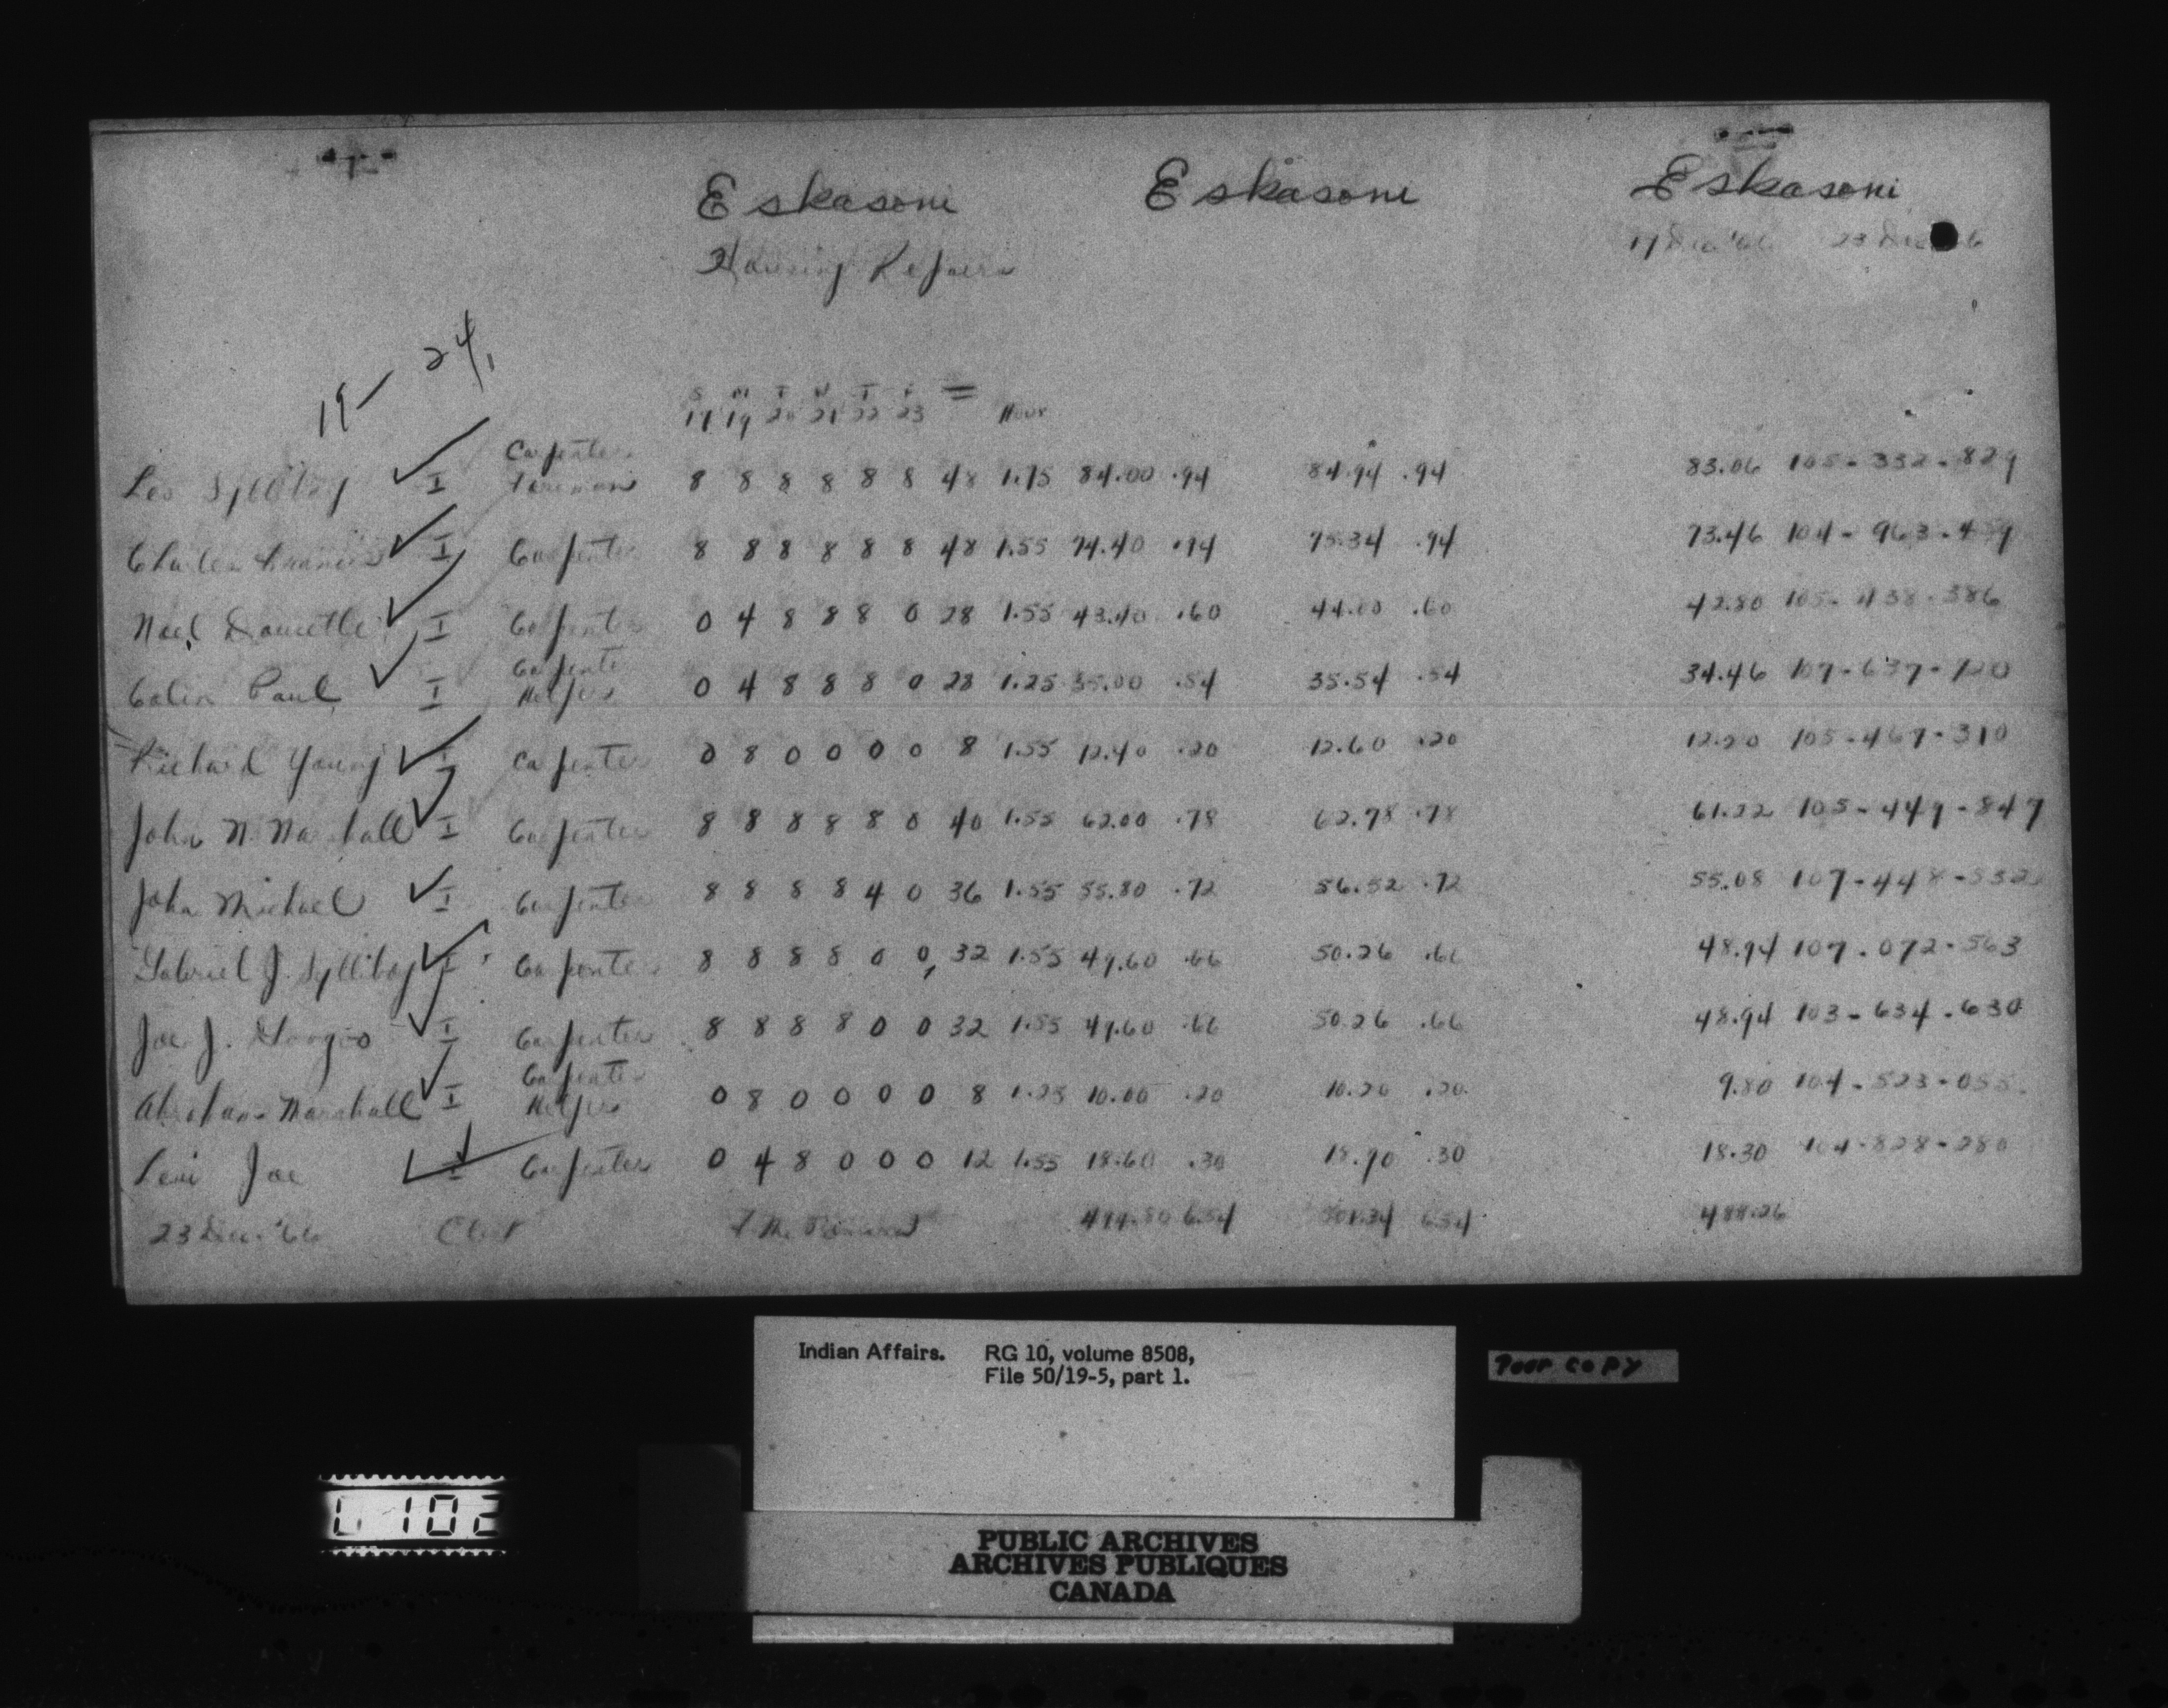 Eskasoni Eskasoni Eskasoni
Housing Repairs 17 Dec '66 23 Dec 6
19 - 24
S M T W T F =
17 19 20 21 22 23 Hour
Leo Sylliboy I Carpenter Foreman 8 8 8 8 8 8 48 1.75 84.00 .94 84.94 .94 83.06 105-332-829
Charles Francis I Carpenter 8 8 8 8 8 8 48 1.55 74.40 .94 75.34 .94 73.46 104-963-
Noel Doucette I Carpenter 0 4 8 8 8 0 28 1.55 43.40 .60 44.00 .60 42.80 105-438-386
Colin Paul I Carpenter Helper 0 4 8 8 8 0 28 1.25 35.00 .54 35.54 .54 34.46 107-637-120
Richard Young I Carpenter 0 8 0 0 0 0 8 1.55 12.40 .20 12.60 .20 12.20 105-467-310
John N. Marshall I Carpenter 8 8 8 8 8 0 40 1.55 62.00 .78 62.78 .78 61.22 105-449-847
John Michael I Carpenter 8 8 8 8 4 0 36 1.55 55.80 .72 56.52 .72 55.08 107-448-532
Gabriel J. Sylliboy I Carpenter 8 8 8 8 0 0 32 1.55 49.60 .66 50.26 .66 48.94 107-072-563
Joe J. Googoo I Carpenter 8 8 8 8 0 0 32 1.55 49.60 .66 50.26 .66 48.94 103-634-630
Abraham Marshall I Carpenter Helper 0 8 0 0 0 0 8 1.25 10.00 .20 10.20 .20 9.80 104-523-055
Levi Joe I Carpenter 0 4 8 0 0 0 12 1.55 18.60 .30 18.90 .30 18.30 104-828-280
23 Dec. '66 494.80 6.54 501.34 6.54 488.26
Indian Affairs. RG 10, volume 8508,
File 50/19-5, part 1.
Poor copy
102
PUBLIC ARCHIVES
ARCHIVES PUBLIQUES
CANADA